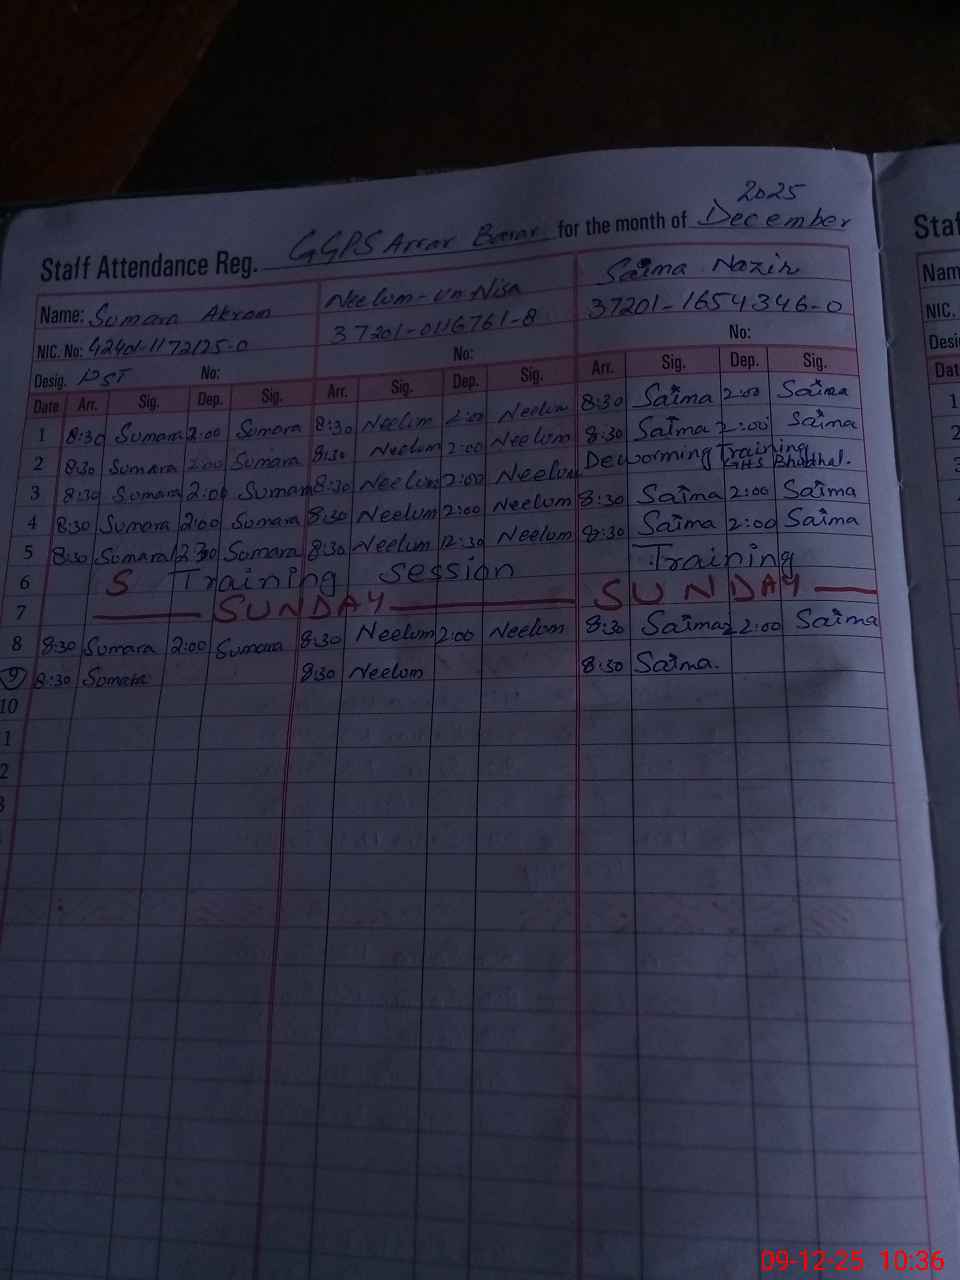 2025
Staff Attendance Reg. GGPS Arrar Barar for the month of December
Name: Sumara Akram Neelum-un-Nisa Saima Nazir
NIC. No: 42401-1172125-0 37201-0116761-8 37201-1654346-0
Desig. PST No: No: No:
Date Arr. Sig. Dep. Sig. Arr. Sig. Dep. Sig. Arr. Sig. Dep. Sig.
1 8:30 Sumara 2:00 Sumara 8:30 Neelum 2:00 Neelum 8:30 Saima 2:00 Saima
2 8:30 Sumara 2:00 Sumara 8:30 Neelum 2:00 Neelum 8:30 Saima 2:00 Saima
3 8:30 Sumara 2:00 Sumara 8:30 Neelum 2:00 Neelum Deworming Training GHS Bhubhal.
4 8:30 Sumara 2:00 Sumara 8:30 Neelum 2:00 Neelum 8:30 Saima 2:00 Saima
5 8:30 Sumara 12:30 Sumara 8:30 Neelum 12:30 Neelum 8:30 Saima 2:00 Saima
6 S Training session Training
7 SUNDAY SUNDAY
8 8:30 Sumara 2:00 Sumara 8:30 Neelum 2:00 Neelum 8:30 Saima 2:00 Saima
9 8:30 Sumara 8:30 Neelum 8:30 Saima.
10
1
2
3
Staf
Nam
NIC.
Desi
Dat
1
2
3
09-12-25 10:36